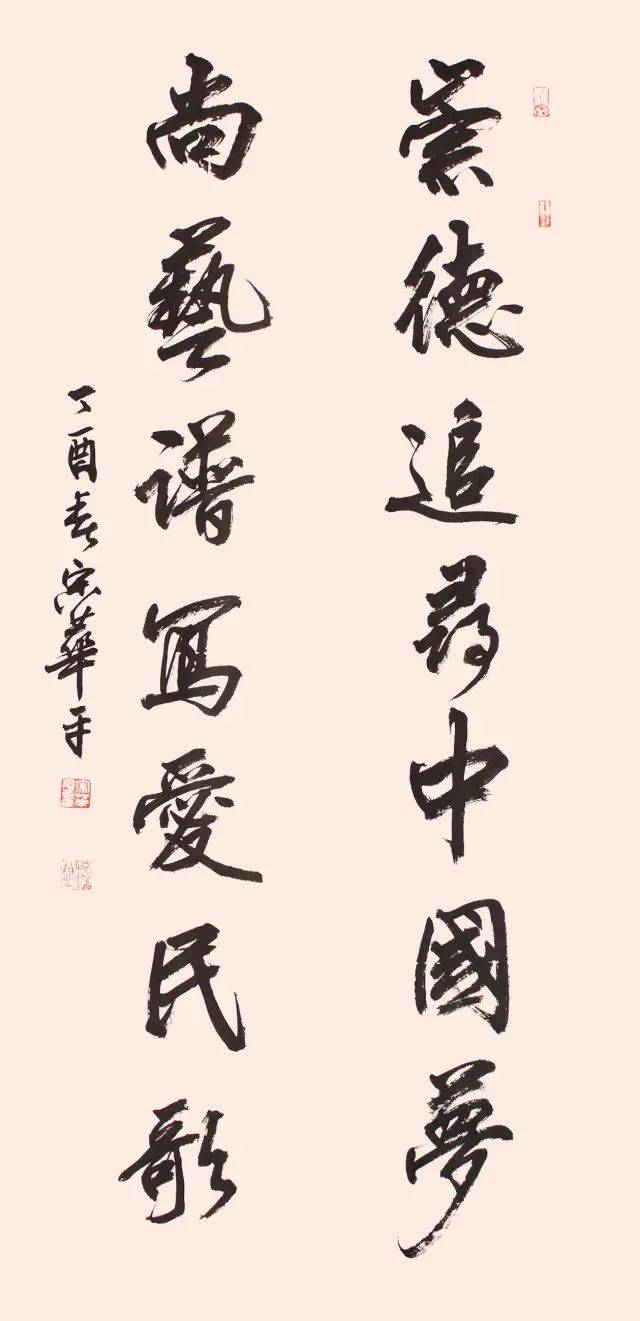 崇德追尋中國夢
尚藝譜寫愛民歌
丁酉春宗華平